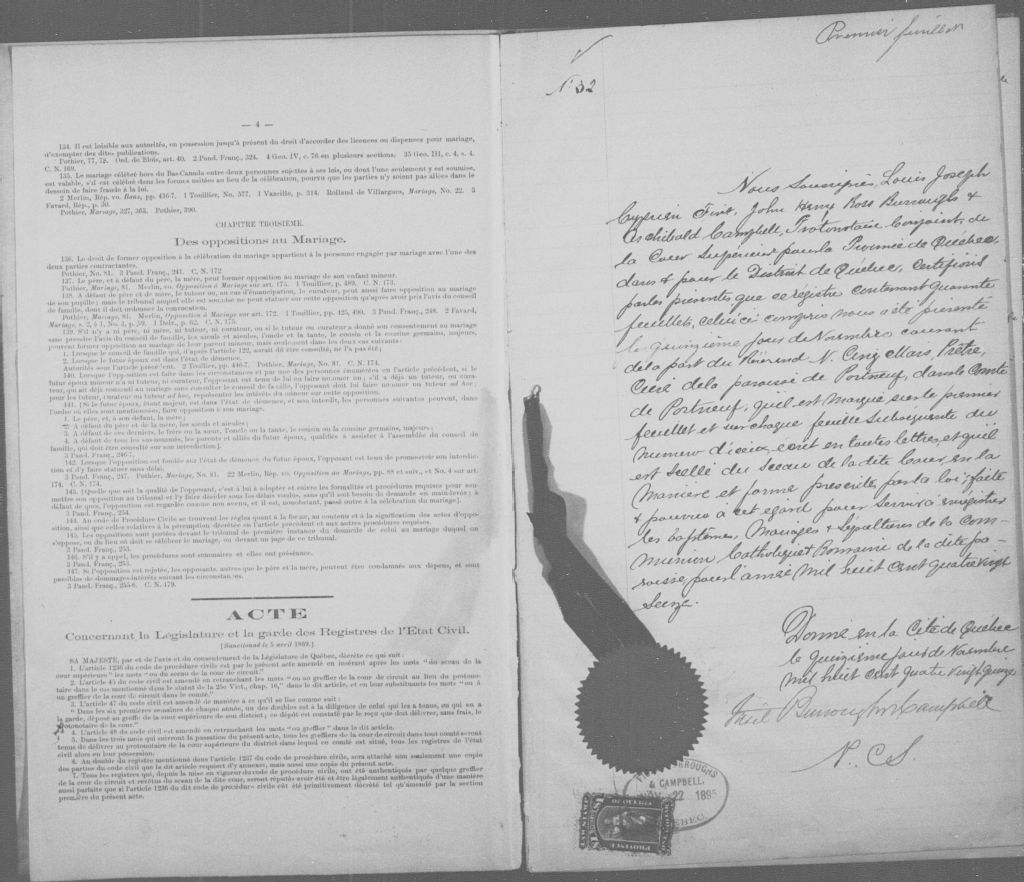 — 4 —
134. Il est loisible aux autorités, en possession jusqu'à présent du droit d'accorder des licences ou dispenses pour mariage,
d'exempter des dites publications.
Pothier, 77, 78. Ord. de Blois, art. 40. 2 Pand. Franç., 324. 4 Geo. IV, c. 76 en plusieurs sections. 35 Geo. III, c. 4, s. 4.
C. N. 169.
135. Le mariage célébré hors du Bas-Canada entre deux personnes sujettes à ses lois, ou dont l'une seulement y est soumise,
est valable, s'il est célébré dans les formes usitées au lieu de la célébration, pourvu que les parties n'y soient pas allées dans le
dessein de faire fraude à la loi.
2 Merlin, Rép. vo. Bans, pp. 436-7. 1 Toullier, No. 577. 1 Vazille, p. 314. Rolland de Villargues, Mariage, No. 22. 3
Favard, Rép., p. 30.
Pothier, Mariage, 327, 363. Pothier, 390.
CHAPITRE TROISIEME.
Des oppositions au Mariage.
136. Le droit de former opposition à la célébration du mariage appartient à la personne engagée par mariage avec l'une des
deux parties contractantes.
Pothier, No. 81. 3 Pand. Franç., 241. C. N. 172.
137. Le père, et à défaut du père, la mère, peut former opposition au mariage de son enfant mineur.
Pothier, Mariage, 81. Merlin, vo. Opposition à Mariage sur art. 173. 1 Toullier, p. 489. C. N. 173.
138. A défaut de père et de mère, le tuteur ou, au cas d'émancipation, le curateur, peut aussi faire opposition au mariage
de son pupille; mais le tribunal auquel elle est soumise ne peut statuer sur cette opposition qu'après avoir pris l'avis du conseil
de famille, dont il doit ordonner la convocation.
Pothier, Mariage, 81. Merlin, Opposition à Mariage sur art. 172. 1 Toullier, pp. 425, 490. 3 Pand. Franç., 248. 2 Favard,
Mariage, s. 2, § 1, No. 3, p. 59. 1 Delv., p. 62. C. N. 175.
139. S'il n'y a ni père, ni mère, ni tuteur, ni curateur, ou si le tuteur ou curateur a donné son consentement au mariage
sans prendre l'avis du conseil de famille, les aïeuls et aïeules, l'oncle et la tante, le cousin et la cousine germains, majeurs,
peuvent former opposition au mariage de leur parent mineur, mais seulement dans les deux cas suivants:
1. Lorsque le conseil de famille qui, d'après l'article 122, aurait dû être consulté, ne l'a pas été;
2. Lorsque le futur époux est dans l'état de démence.
Autorités sous l'article précédent. 2 Toullier, pp. 446-7. Pothier, Mariage, No. 81. C. N. 174.
140. Lorsque l'opposition est faite dans les circonstances et par une des personnes énumérées en l'article précédent, si le
futur époux mineur n'a ni tuteur, ni curateur, l'opposant est tenu de lui en faire nommer un; s'il a déjà un tuteur, ou cura-
teur, qui ait déjà consenti au mariage sans consulter le conseil de famille, l'opposant doit lui faire nommer un tuteur ad hoc;
pour les tuteur, curateur ou tuteur ad hoc, représenter les intérêts du mineur sur cette opposition.
141. [Si le futur époux, étant majeur, est dans l'état de démence, et son interdit, les personnes suivantes peuvent, dans
l'ordre où elles sont mentionnées, faire opposition à son mariage.
1. Le père, et, à son défaut, la mère;
2. A défaut du père et de la mère, les aïeuls et aïeules;
3. A défaut de ces derniers, le frère ou la sœur, l'oncle ou la tante, le cousin ou la cousine germains, majeurs;
4. A défaut de tous les sus-nommés, les parents et alliés du futur époux, qualifiés à assister à l'assemblée du conseil de
famille, qui doit être consulté sur son interdiction].
3 Pand. Franç., 246-7.
142. Lorsque l'opposition est fondée sur l'état de démence du futur époux, l'opposant est tenu de promouvoir son interdic-
tion et d'y faire statuer sans délai.
3 Pand. Franç., 247. Pothier, Mariage, No. 81. 22 Merlin, Rép. vo. Opposition au Mariage, pp. 88 et suiv., et No. 4 sur art.
174. C. N. 174.
143. [Quelle que soit la qualité de l'opposant, c'est à lui à adopter et suivre les formalités et procédures requises pour sou-
mettre son opposition au tribunal et l'y faire décider sous les délais voulus, sans qu'il soit besoin de demande en main-levée; à
défaut de quoi, l'opposition est regardée comme non avenue, et il est, nonobstant, passé outre à la célébration du mariage].
3 Pand. Franç., 254.
144. Au code de Procédure Civile se trouvent les règles quant à la forme, au contenu et à la signification des actes d'oppo-
sition, ainsi que celles relatives à la péremption décrétée en l'article précédent et aux autres procédures requises.
145. Les oppositions sont portées devant le tribunal de première instance du domicile de celui au mariage duquel on
s'oppose, ou du lieu où doit se célébrer le mariage, ou devant un juge de ce tribunal.
3 Pand. Franç., 253.
146. S'il y a appel, les procédures sont sommaires et elles ont préséance.
3 Pand. Franç., 255.
147. Si l'opposition est rejetée, les opposants, autres que le père et la mère, peuvent être condamnés aux dépens, et sont
passibles de dommages-intérêts suivant les circonstances.
3 Pand. Franç., 255-6. C. N. 179.
ACTE
Concernant la Législature et la garde des Registres de l'Etat Civil.
[Sanctionné le 5 avril 1869.]
SA MAJESTE, par et de l'avis et du consentement de la Législature de Québec, décrète ce qui suit:
1. L'article 1236 du code de procédure civile est par le présent acte amendé en insérant après les mots "du sceau de la
cour supérieure" les mots "ou du sceau de la cour de circuit."
2. L'article 45 du code civil est amendé en retranchant les mots "ou au greffier de la cour de circuit au lieu du protono-
taire dans le cas mentionné dans le statut de la 25e Vict., chap. 16," dans le dit article, et en leur substituants les mots "ou à
un greffier de la cour de circuit dans le comté."
3. L'article 47 du code civil est amendé de manière à ce qu'il se lise comme suit:
"Dans les six premières semaines de chaque année, un des doubles est à la diligence de celui qui les a tenus, ou qui en a
la garde, déposé au greffe de la cour supérieure de son district; ce dépôt est constaté par le reçu que doit délivrer, sans frais, le
protonotaire de la cour."
4. L'article 49 du code civil est amendé en retranchant les mots "ou greffier" dans le dit article.
5. Dans les trois mois qui suivront la passation du présent acte, tous les greffiers de la cour de circuit dans tout comté seront
tenus de délivrer au protonotaire de la cour supérieure du district dans lequel ce comté est situé, tous les registres de l'état
civil alors en leur possession.
6. Au double du registre mentionné dans l'article 1237 du code de procédure civile, sera attaché non seulement une copie
des parties du code civil que le dit article requiert d'y annexer, mais aussi une copie du présent acte.
7. Tous les registres qui, depuis la mise en vigueur du code de procédure civile, ont été authentiqués par quelque greffier
de la cour de circuit et revêtus du sceau de la dite cour, seront réputés avoir été et être légalement authentiqués d'une manière
aussi parfaite que si l'article 1236 du dit code de procédure civile eût été primitivement décrété tel qu'amendé par la section
première du présent acte.
Premier feuillet
No 32
Nous Soussignés, Louis Joseph
Cyprien Fiset, John Henry Ross Burroughs &
Archibald Campbell, Protonotaire Conjoint, de
la Cour Supérieure pour la Province de Québec,
dans et pour le District de Québec, certifions
par les présentes que ce régistre contenant quarante
feuillets, celui ci compris nous a été présenté
le quinzième jour de Novembre courant
de la part du Révérend N. Cinq Mars, Prêtre,
Curé de la paroisse de Portneuf, dans le Comté
de Portneuf, qu'il est marqué sur le premier
feuillet et sur chaque feuille subséquente du
numéro d'icieux, écrit en toutes lettres, et qu'il
est scellé du Sceau de la dite Cour, en la
manière et forme prescrite par la loi; faite
& pourvue à cet égard pour servir à enrégistrer
les baptêmes, Mariages & Sépultures de la Com-
munion Catholique & Romaine de la dite pa-
roisse pour l'année Mil huit cent quatre vingt
Seize.
Donné en la Cité de Québec
le quinzième jour de Novembre
mil huit cent quatre vingt quinze
Fiset Burroughs & Campbell
P. C. S.
BURROUGHS
& CAMPBELL,
NOV 22 1895
QUEBEC.
$1
LAW STAMP
OF QUEBEC
PROVINCE